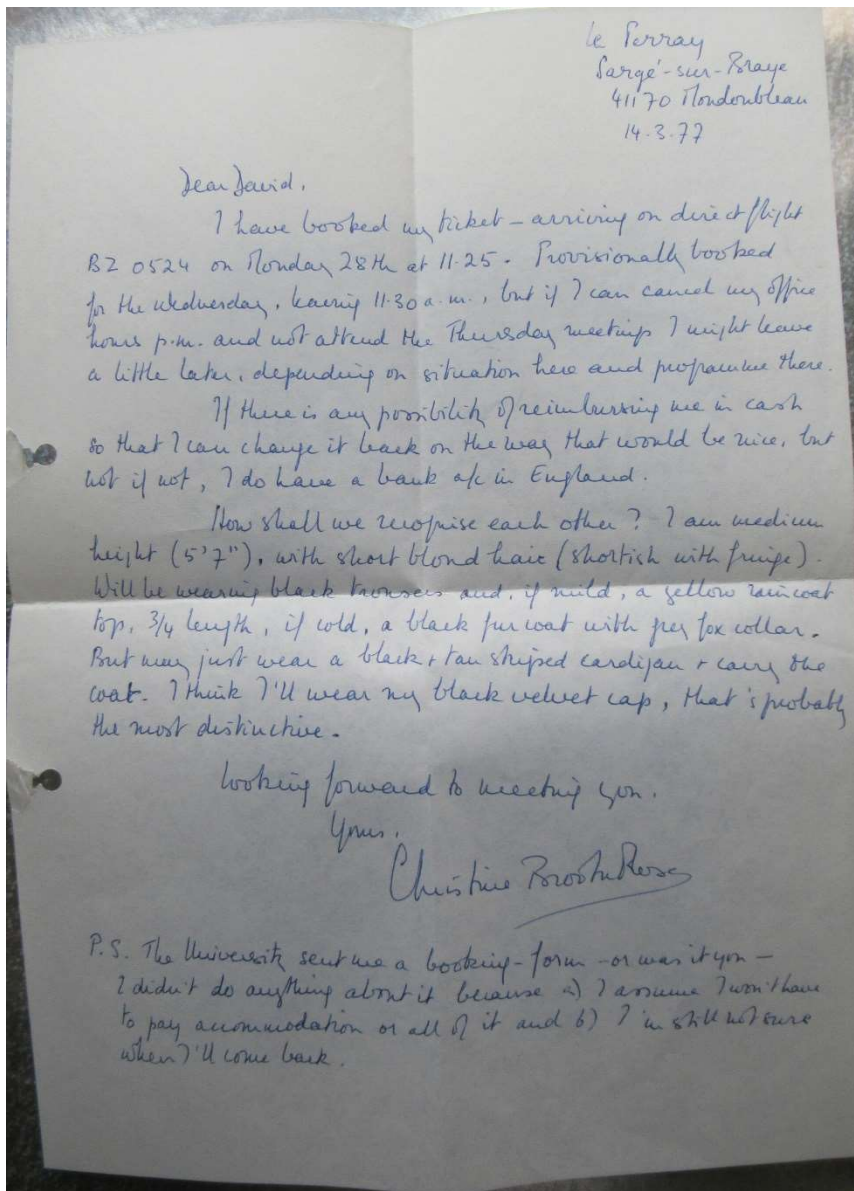 Le Perray
Sargé-sur-Braye
41170 Mondoubleau
14.3.77
Dear David,
I have booked my ticket – arriving on direct flight
BZ 0524 on Monday 28th at 11.25. Provisionally booked
for the Wednesday, leaving 11.30 a.m., but if I can cancel my office
hours p.m. and not attend the Thursday meetings I might leave
a little later, depending on situation here and programme there.
If there is any possibility of reimbursing me in cash
so that I can change it back on the way that would be nice, but
not if not, I do have a bank a/c in England.
How shall we recognise each other? I am medium
height (5'7"), with short blond hair (shortish with fringe).
Will be wearing black trousers and, if mild, a yellow raincoat
top, 3/4 length, if cold, a black fur coat with grey fox collar.
But may just wear a black + tan striped cardigan + carry the
coat. I think I'll wear my black velvet cap, that's probably
the most distinctive.
Looking forward to meeting you.
Yours,
Christine Brooke-Rose
P.S. The University sent me a booking-form – or was it you –
I didn't do anything about it because a) I assume I won't have
to pay accommodation or all of it and b) I'm still not sure
when I'll come back.